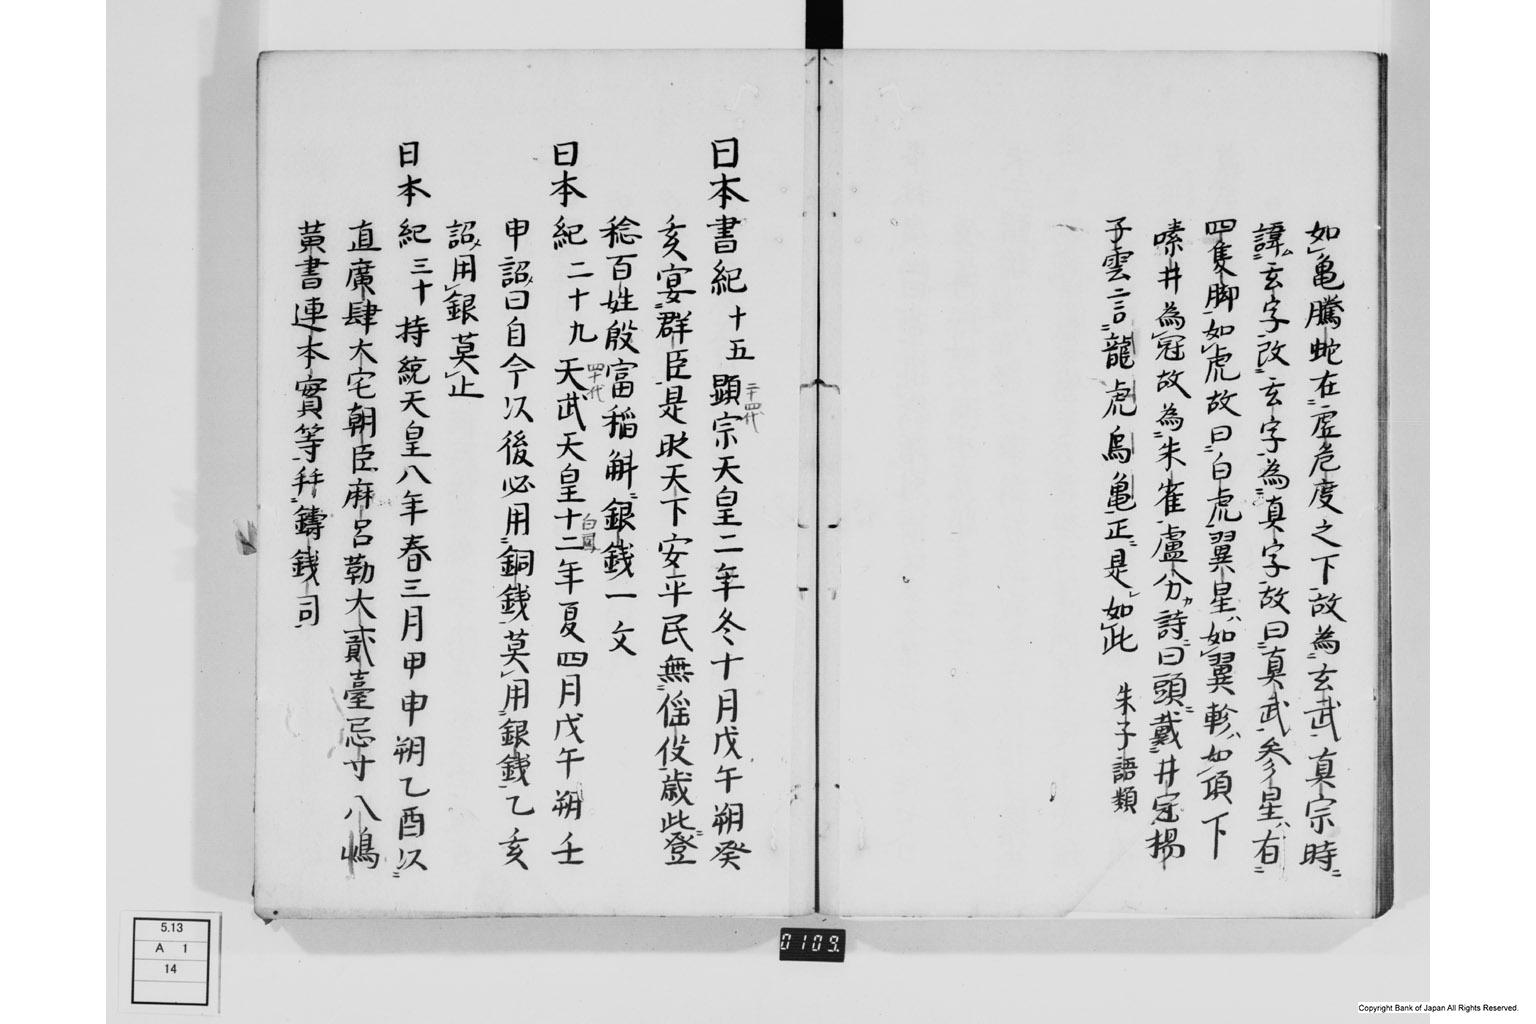 如亀騰蛇在虚危度之下故為玄武真宗時
諱玄字改玄字為真字故曰真武参星有
四隻脚如虎故曰白虎翼星如翼軫如項下
嗉井為冠故為朱雀盧仝詩曰頭戴井冠楊
子雲言龍虎鳥亀正是如此 朱子語類
日本書紀十五顕宗天皇二年冬十月戊午朔癸
二十四代
亥宴群臣是時天下安平民無徭役歳比登
稔百姓殷富稲斛銀銭一文
日本紀二十九天武天皇十二年夏四月戊午朔壬
四十代
白鳳
申詔曰自今以後必用銅銭莫用銀銭乙亥
詔用銀莫止
日本紀三十持統天皇八年春三月甲申朔乙酉以
直廣肆大宅朝臣麻呂勒大貳臺忌寸八嶋
黄書連本實等拝鑄銭司
0109
5.13
A 1
14
Copyright Bank of Japan All Rights Reserved.